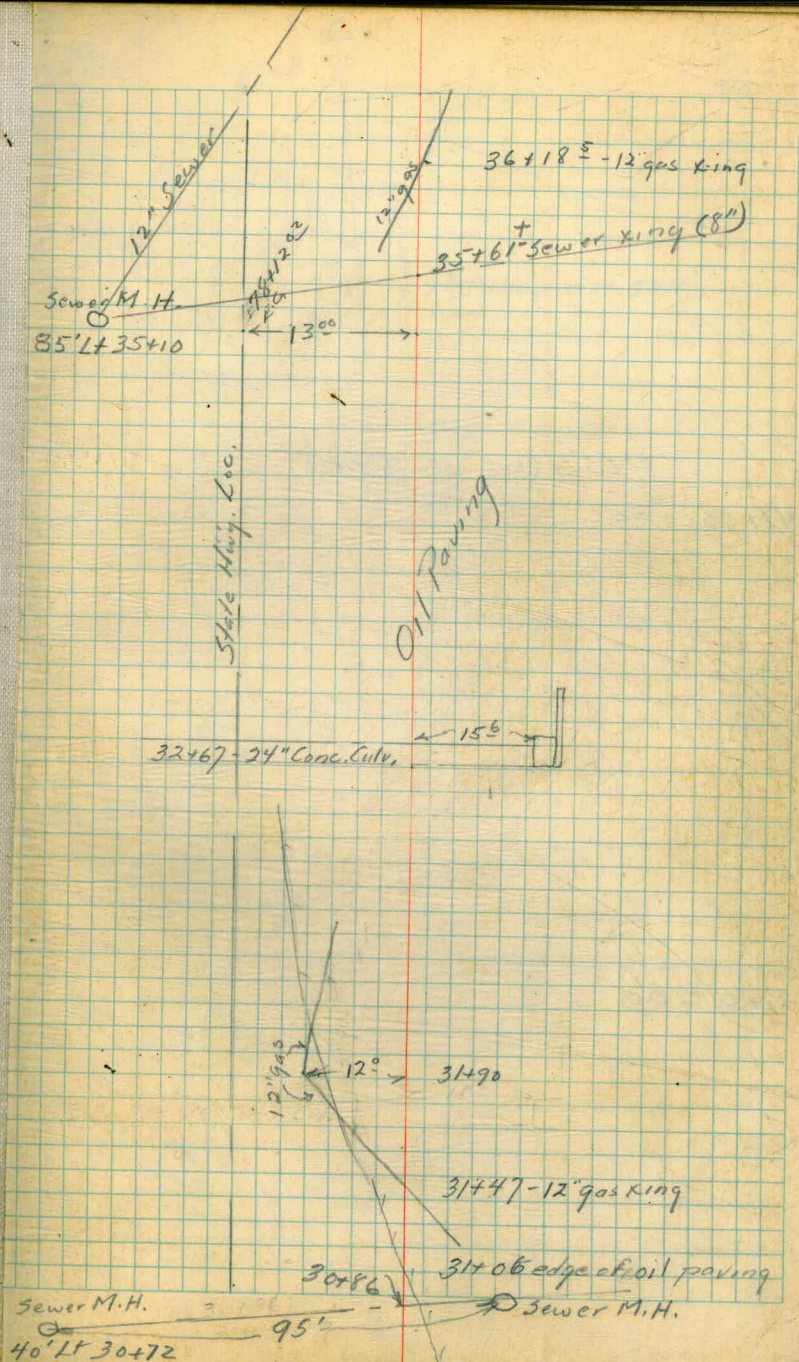 12" Sewer
12" gas
36+18 5 - 12" gas xing
35+61 + - Sewer xing (8")
78+12 02
Sewer M.H.
13 00
85' Lt 35+10
State Hwy. Loc.
Oil Paving
15 6
32+67 - 24" Conc. Culv.
12" gas
12 0
31+90
31+47 - 12" gas xing
31+06 edge of oil paving
30+86
Sewer M.H.
Sewer M.H.
95'
40' Lt 30+72